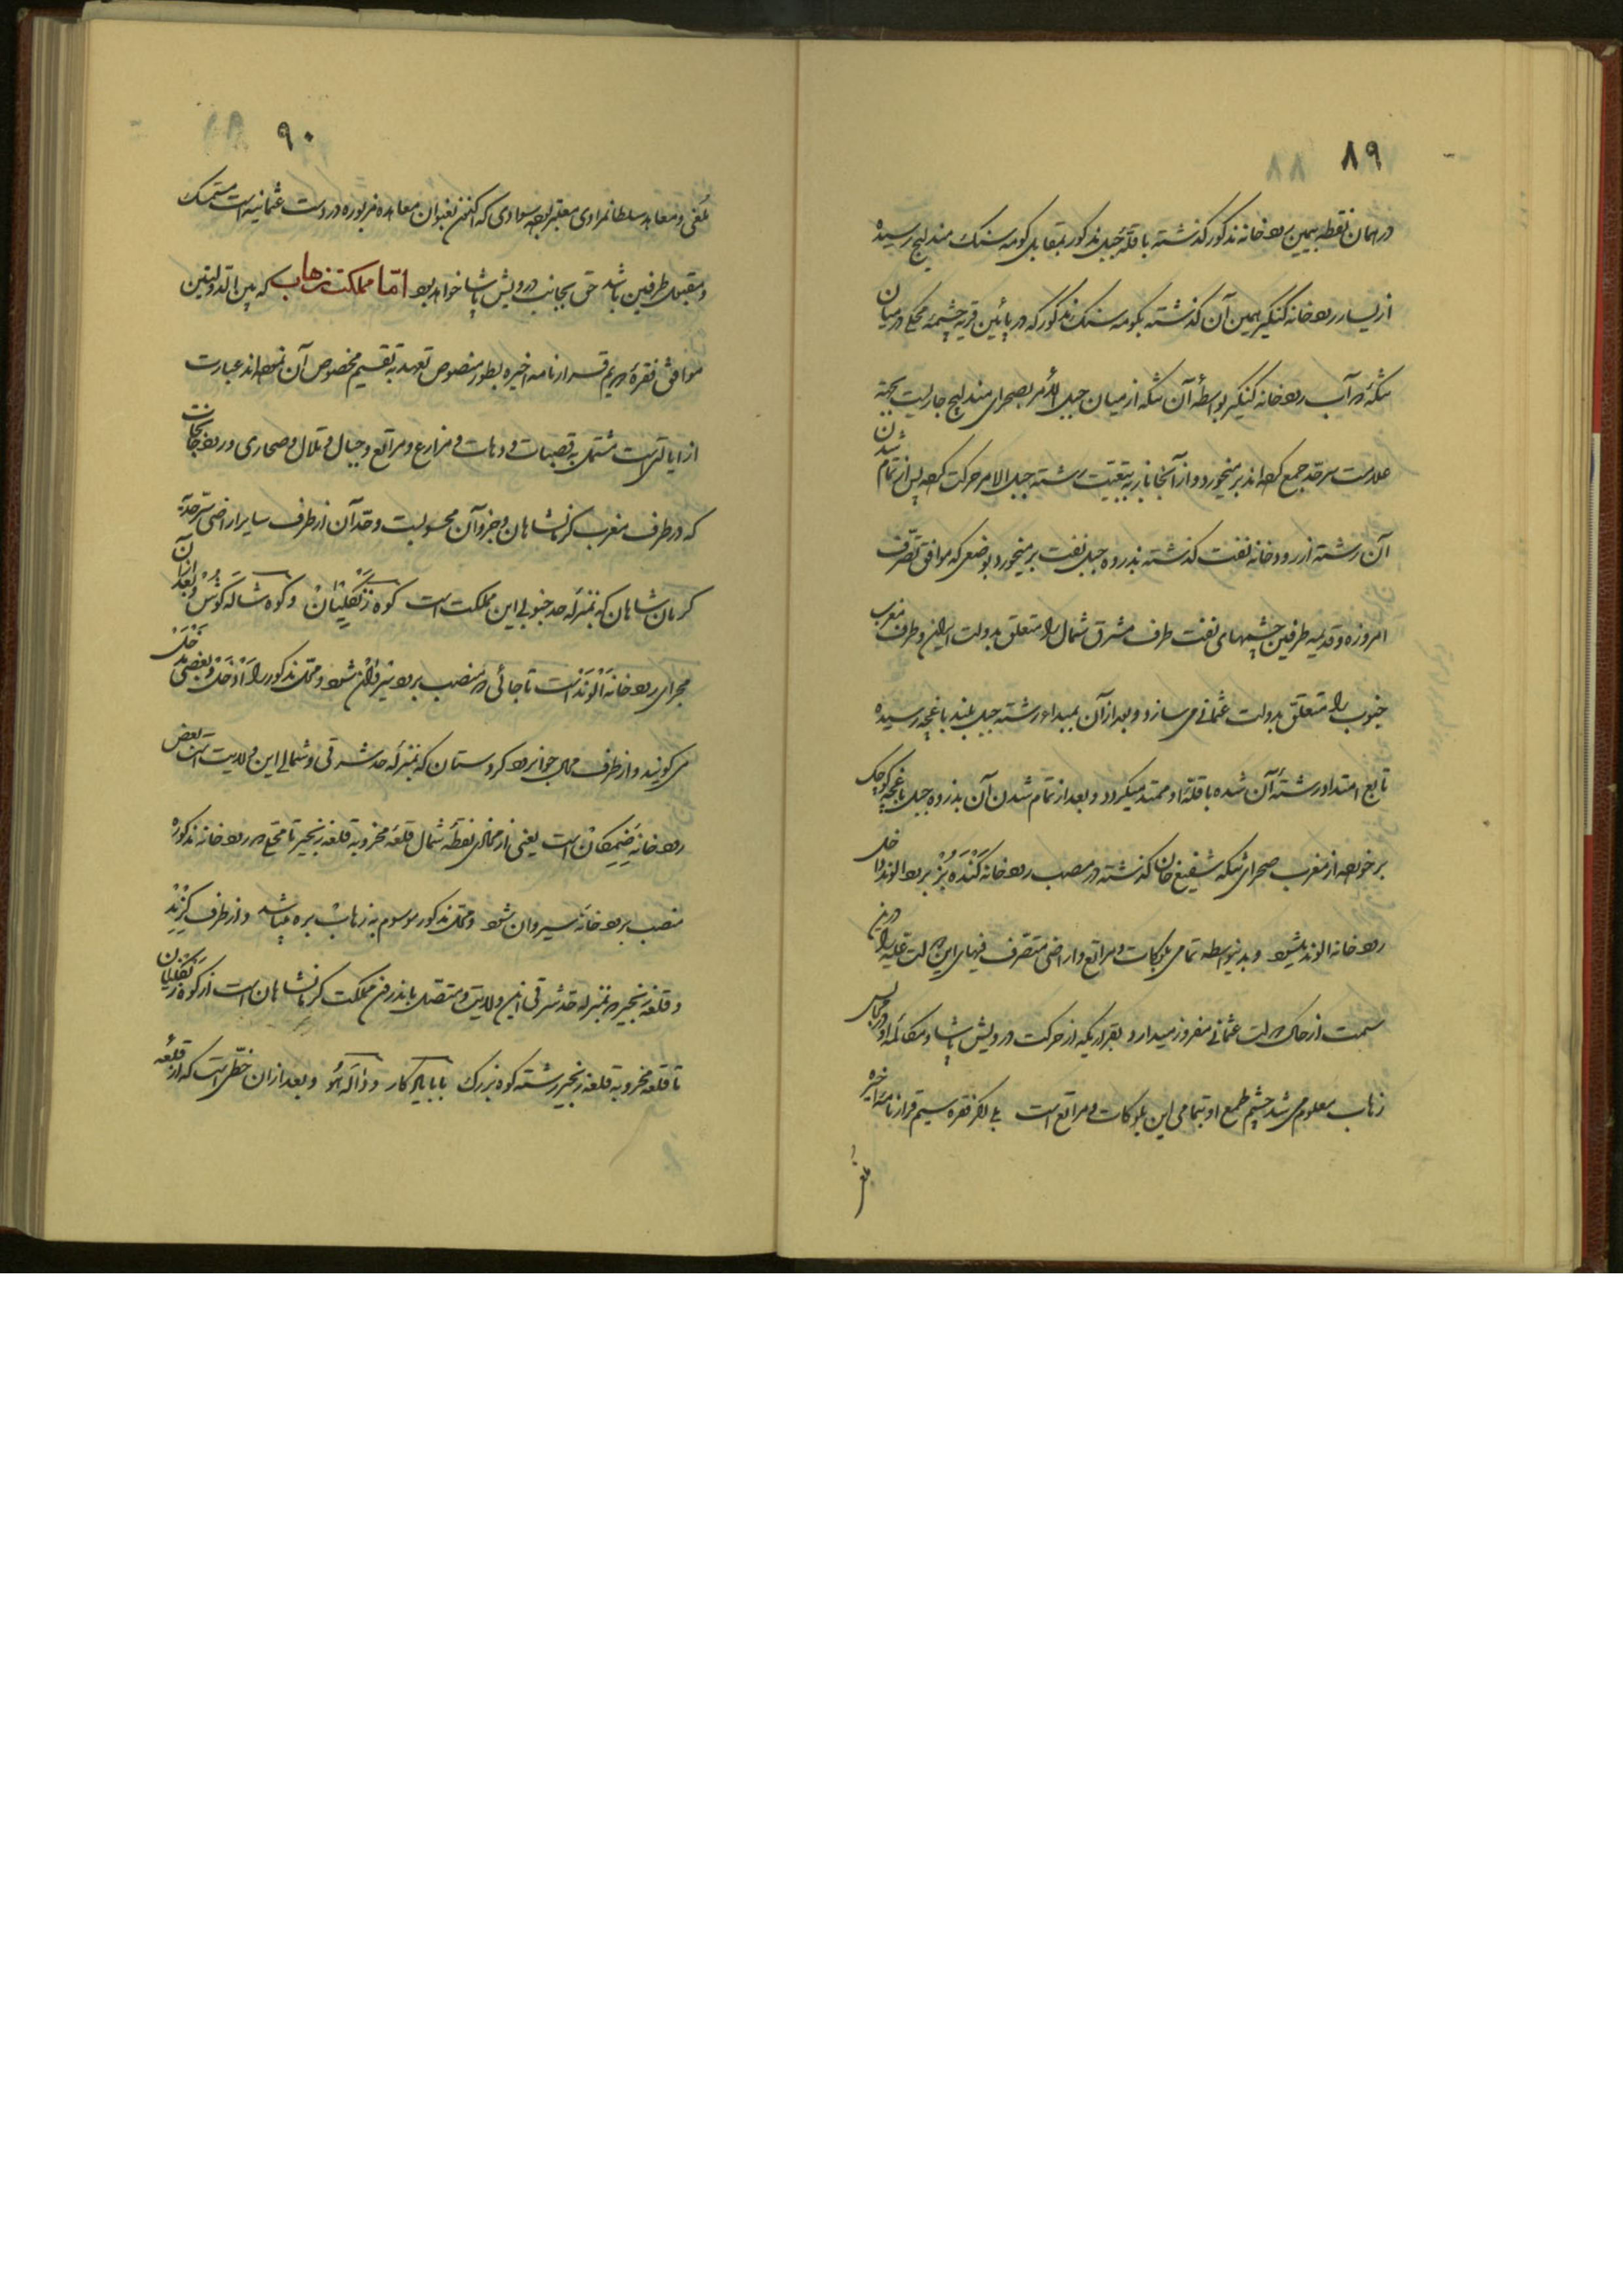 ۸۹
در همان نقطه بیمین رودخانه مذکور گذشته با قلهٔ جبل مذکور بمقابل کومه سنک مندلیج رسیده
از یسار رودخانه کنکیر بیمین آن گذشته بکومه سنک مذکور که در پائین قریه چشمه در میان
تنکه در آب رودخانه کنکیر بواسطهٔ آن تنکه از میان جبل الامر بصحرای مندلیج جاریست بجهة
علامت سرحد جمع کرده‌اند بر میخورد و از آنجا باز به تبعیت رشته جبل الامر حرکت کرده پس از تمام شدن
آن رشته از رودخانه نفت گذشته بذروه جبل نفت بر میخورد بوضعی که موافق تصرف
امروزه و قدیمه طرفین چشمهای نفت طرف مشرق شمال را متعلق بدولت ایران و طرف مغرب
جنوب را متعلق بدولت عثمانی می سازد و بعد از آن بمبداء رشته جبل بلند باغچه رسیده
تابع امتداد رشتهٔ آن شده با قلهٔ او ممتد میگردد و بعد از تمام شدن آن بذروه جبل باغچه کوچک
برخورده از مغرب صحرای تنکه شفیع خان گذشته در مصب رودخانه کنده بز برود الوند داخل
رودخانه الوند میشود و بدینواسطه تمامی بلوکات و مراتع و اراضی متصرف فیهای این دولت علیه را در این
سمت از خاک دولت عثمانی مفروز میدارد و بقراریکه از حرکت درویش پاشا و مکالمهٔ او در مجالس
زهاب معلوم می شد چشم طمع او بتمامی این بلوکات و مراتع است بلی اگر فقره سیم قرارنامه اخیره
۹۰
ملغی و معاهده سلطانمرادی معتبر بوده سوادی که اکنون بعنوان معاهده مزبوره در دست عثمانیه است متمسک
و مقبول طرفین باشد حق بجانب درویش پاشا خواهد بود اما مملکت زهاب که بین الدولتین
موافق فقرهٔ دویم قرارنامه اخیره بطور منصوص تعهد به تقسیم مخصوص آن نموده‌اند عبارت
از ایالتی است مشتمل به قصبات و دهات و مزارع و مراتع و جبال و تلال و صحاری و رودخانجات
که در طرف مغرب کرمانشاهان و جزو آن محسوبست و حد آن از طرف سایر اراضی سرحدیه
کرمانشاهان که بمنزله حد جنوبی این مملکت است کوه زنگلیان و کوه شاله کوش و بعد از آن
مجرای رودخانه الوند است تا جائی که منصب برود سیروان شود و محل مذکور را و بعضی
می گویند و از طرف محال جوانرود کردستان که بمنزله حد شرقی و شمالی این ولایت است بعض
رودخانه زیمکان است یعنی از محاذی نقطهٔ شمال قلعه مخروبه قلعه زنجیر تا محلی که رودخانه مذکوره
منصب برودخانه سیروان شود و محل مذکور موسوم به زهاب بره میباشد و از طرف کرند
و قلعه زنجیر که بمنزله حد شرقی این ولایت و متصل باندرون مملکت کرمانشاهان است از کوه زنگلیان
تا قلعه مخروبه قلعه زنجیر رشته کوه بزرک بابا یادکار و دالاهو و بعد از آن خطی است که از قلعه